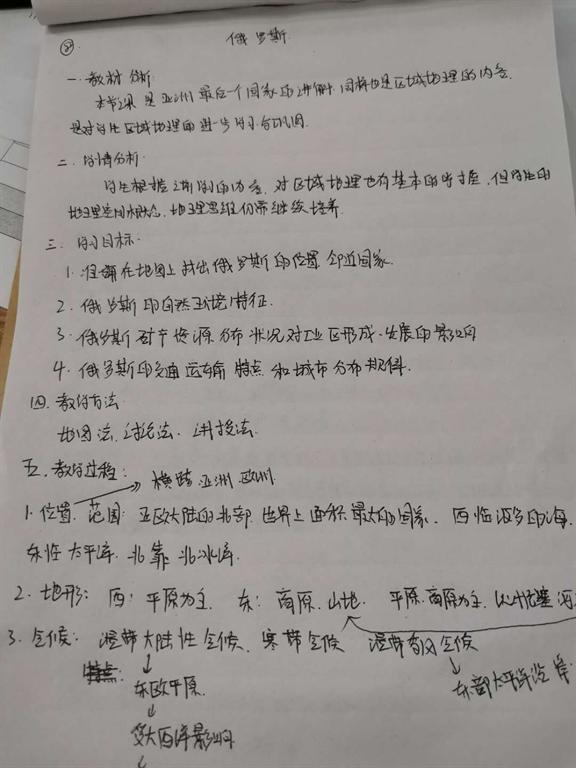 俄罗斯
一. 教材分析
本节课是亚洲最后一个国家的讲解, 同样也是区域地理的内容.
是对学生区域地理的进一步学习与巩固.
二. 学情分析.
学生根据之前学习的内容, 对区域地理也有基本的学习, 但学生的
地理空间概念, 地理思维仍需继续培养.
三. 学习目标.
1. 准确在地图上找出俄罗斯的位置. 邻近国家.
2. 俄罗斯的自然环境特征.
3. 俄罗斯矿产资源分布状况对工业区形成、发展的影响
4. 俄罗斯的交通运输特点和城市分布规律.
四. 教学方法.
地图法. 讨论法. 讲授法.
五. 教学过程:
横跨亚洲 欧洲
1. 位置. 范围: 亚欧大陆的北部. 世界上面积最大的国家. 西临波罗的海.
东临太平洋. 北靠北冰洋.
2. 地形: 西: 平原为主. 东: 高原. 山地. 平原. 高原为主.
3. 气候: 温带大陆性气候. 寒带气候 温带季风气候
特点:
东欧平原. 东部太平洋沿岸.
受大西洋影响